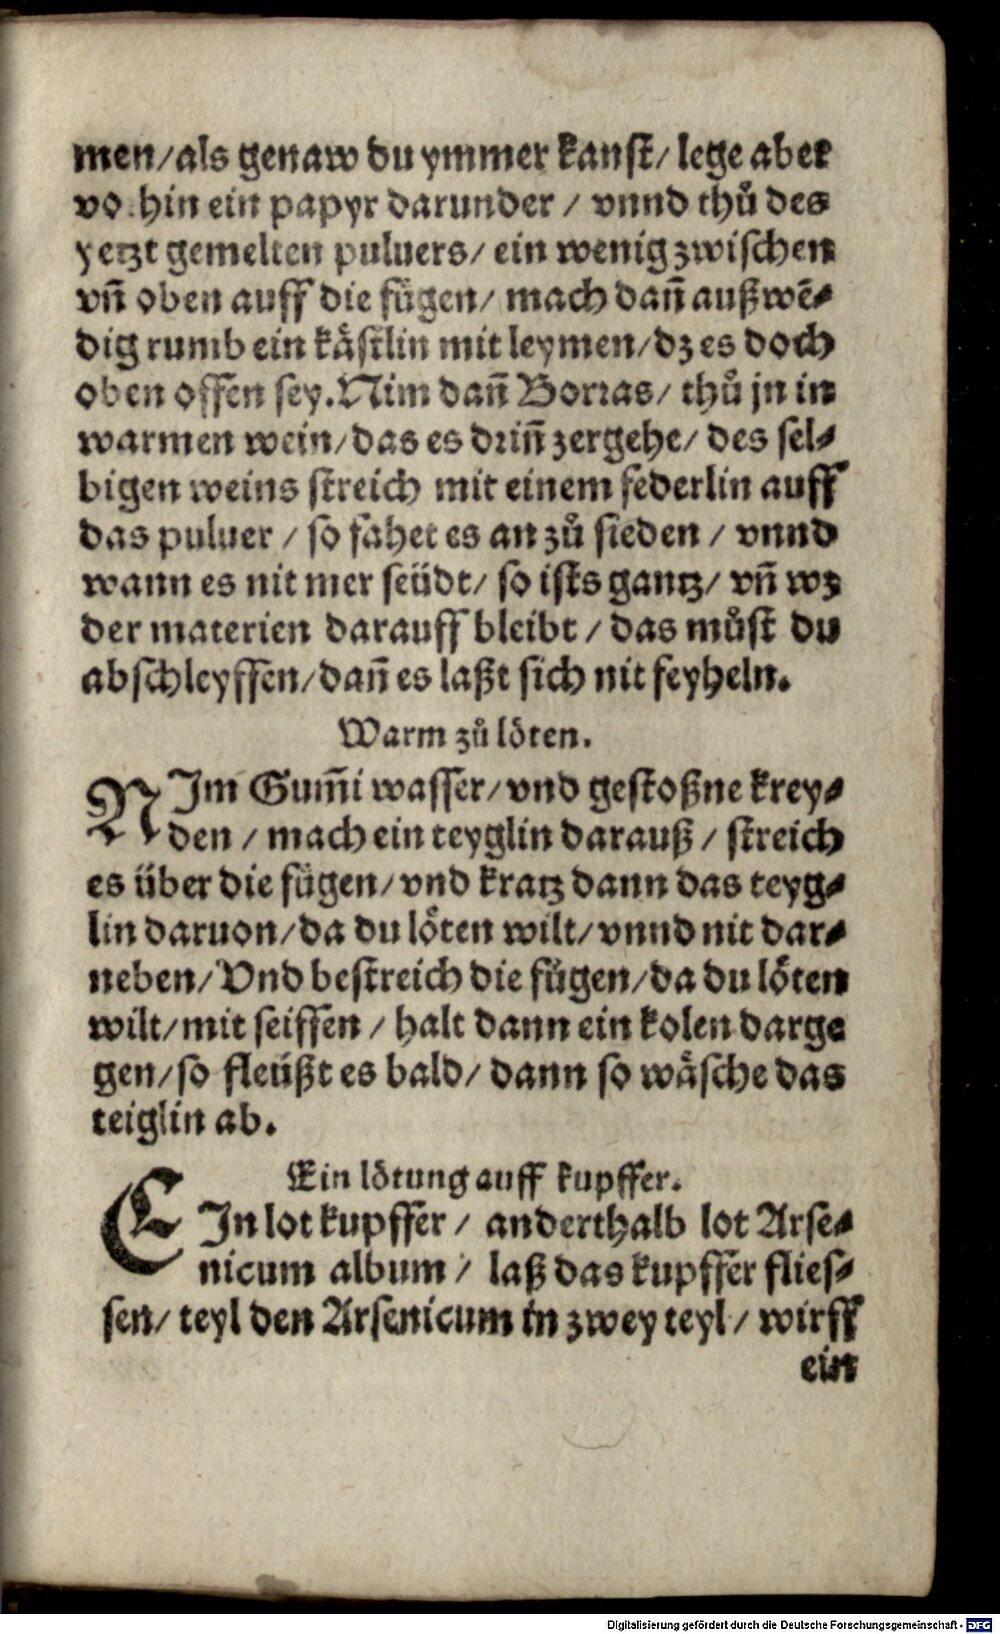 men/als genaw du ymmer kanst/ lege aber
vo hin ein papyr darunder / vnnd thů des
yetzt gemelten puluers/ ein wenig zwischen
vñ oben auff die fügen/ mach dañ außwē-
dig rumb ein kåstlin mit leymen/dz es doch
oben offen sey. Nim dañ Borras/ thů jn in
warmen wein/das es driñ zergehe/ des sel-
bigen weins streich mit einem federlin auff
das puluer / so fahet es an zů sieden / vnnd
wann es nit mer seüdt/ so ists gantz/ vñ wz
der materien darauff bleibt / das můst du
abschleyffen/dañ es laßt sich nit feyheln.
Warm zů löten.
NIm Gum̃i wasser/vnd gestoßne krey-
den / mach ein teyglin darauß / streich
es über die fügen/vnd kratz dann das teyg-
lin daruon/da du löten wilt/vnnd nit dar-
neben/Vnd bestreich die fügen/da du löten
wilt/mit seiffen / halt dann ein kolen darge
gen/so fleüßt es bald/ dann so wåsche das
teiglin ab.
Ein lötung auff kupffer.
EIn lot kupffer / anderthalb lot Arse-
nicum album / laß das kupffer flies-
sen/ teyl den Arsenicum in zwey teyl / wirff
ein
Digitalisierung gefördert durch die Deutsche Forschungsgemeinschaft - DFG